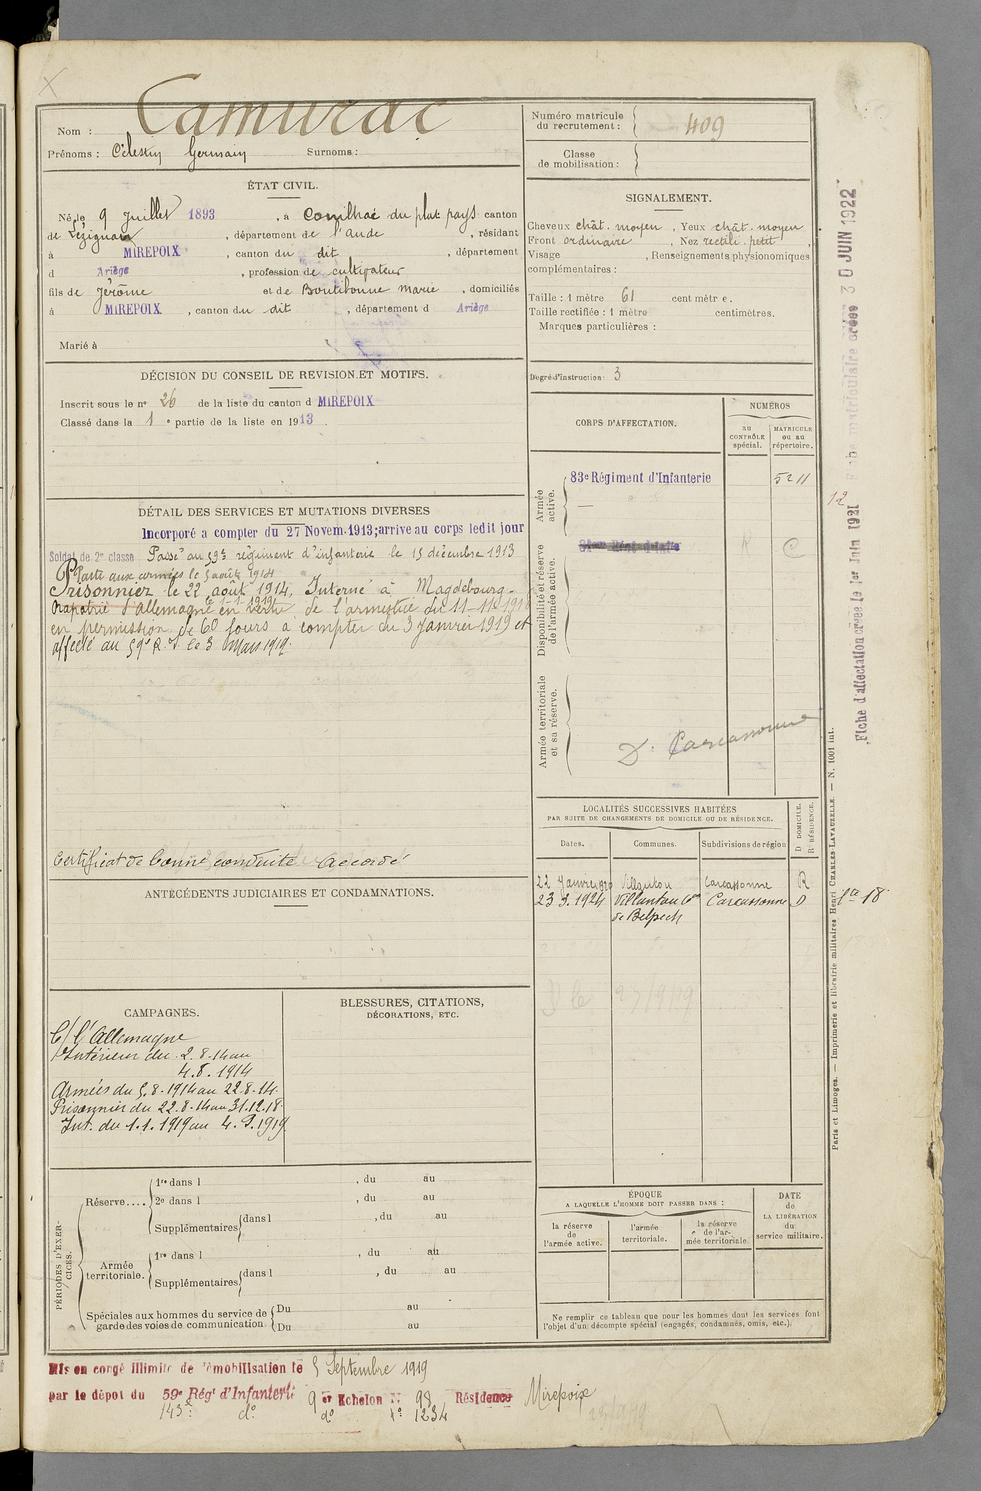 Nom : Camurac
Prénoms : Célestin Germain Surnoms :
Numéro matricule du recrutement : 409
Classe de mobilisation :
ÉTAT CIVIL.
Né le 9 Juillet 1893, à Conilhac du plat pays canton
de Lézignan, département de l'Aude, résidant
à MIREPOIX, canton du dit, département
d Ariège, profession de cultivateur
fils de Jérôme et de Boutibonne marie, domiciliés
à MIREPOIX, canton du dit, département d Ariège
Marié à
SIGNALEMENT.
Cheveux chât. moyen, Yeux chât. moyen
Front ordinaire, Nez rectili. petit,
Visage , Renseignements physionomiques
complémentaires :
Taille : 1 mètre 61 centimètre.
Taille rectifiée : 1 mètre centimètres.
Marques particulières :
Degré d'instruction : 3
DÉCISION DU CONSEIL DE REVISION ET MOTIFS.
Inscrit sous le nº 26 de la liste du canton d MIREPOIX
Classé dans la 1e partie de la liste en 1913.
DÉTAIL DES SERVICES ET MUTATIONS DIVERSES
Incorporé a compter du 27 Novem. 1913; arrive au corps ledit jour
Soldat de 2e classe Passé au 59e régiment d'infanterie le 15 décembre 1913
Parti aux armées le 5 août 1914
Prisonnier le 22 août 1914, Interné à Magdebourg -
le 1-1-1919
Rapatrié d'allemagne en vertu de l'armistice du 11-11-1918
en permission de 60 jours à compter du 3 janvier 1919 et
affecté au 59e R. I. le 3 Mars 1919.
Certificat de bonne conduite Accordé
CORPS D'AFFECTATION.
NUMÉROS
AU CONTRÔLE spécial.
MATRICULE ou au répertoire.
Armée active.
83e Régiment d'Infanterie 5211
Disponibilité et réserve de l'armée active.
Armée territoriale et sa réserve.
D. Carcassonne
LOCALITÉS SUCCESSIVES HABITÉES
PAR SUITE DE CHANGEMENTS DE DOMICILE OU DE RÉSIDENCE.
D DOMICILE. R RÉSIDENCE.
Dates. Communes. Subdivisions de région
22 Janvier 1920 Villautou Carcassonne R
23.9.1924 Villautou Con Carcassonne D
de Belpech
ANTÉCÉDENTS JUDICIAIRES ET CONDAMNATIONS.
CAMPAGNES.
C/ l'Allemagne
Intérieur du 2.8.14 au
4.8.1914
Armées du 5.8.1914 au 22.8.14.
Prisonnier du 22.8.14 au 31.12.18.
Int. du 1.1.1919 au 4.9.1919
BLESSURES, CITATIONS,
DÉCORATIONS, ETC.
PÉRIODES D'EXERCICES.
Réserve....
1re dans l , du au
2e dans l , du au
Supplémentaires dans l , du au
Armée territoriale.
1re dans l , du au
Supplémentaires dans l , du au
Spéciales aux hommes du service de garde des voies de communication.
Du au
Du au
ÉPOQUE
A LAQUELLE L'HOMME DOIT PASSER DANS :
la réserve de l'armée active.
l'armée territoriale.
la réserve de l'armée territoriale.
DATE de LA LIBÉRATION du service militaire.
Ne remplir ce tableau que pour les hommes dont les services font
l'objet d'un décompte spécial (engagés, condamnés, omis, etc.).
Mis en congé illimité de démobilisation le 5 Septembre 1919
par le dépôt du 59e Régt d'Infanterie 9er Echelon Nº 98 Résidence Mirepoix
143e do do nº 1234
Paris et Limoges. — Imprimerie et librairie militaires Henri CHARLES-LAVAUZELLE. — N. 1001 int.
Fiche d'affectation créée le 1er Juin 1921
matriculaire créée 30 JUIN 1922
12